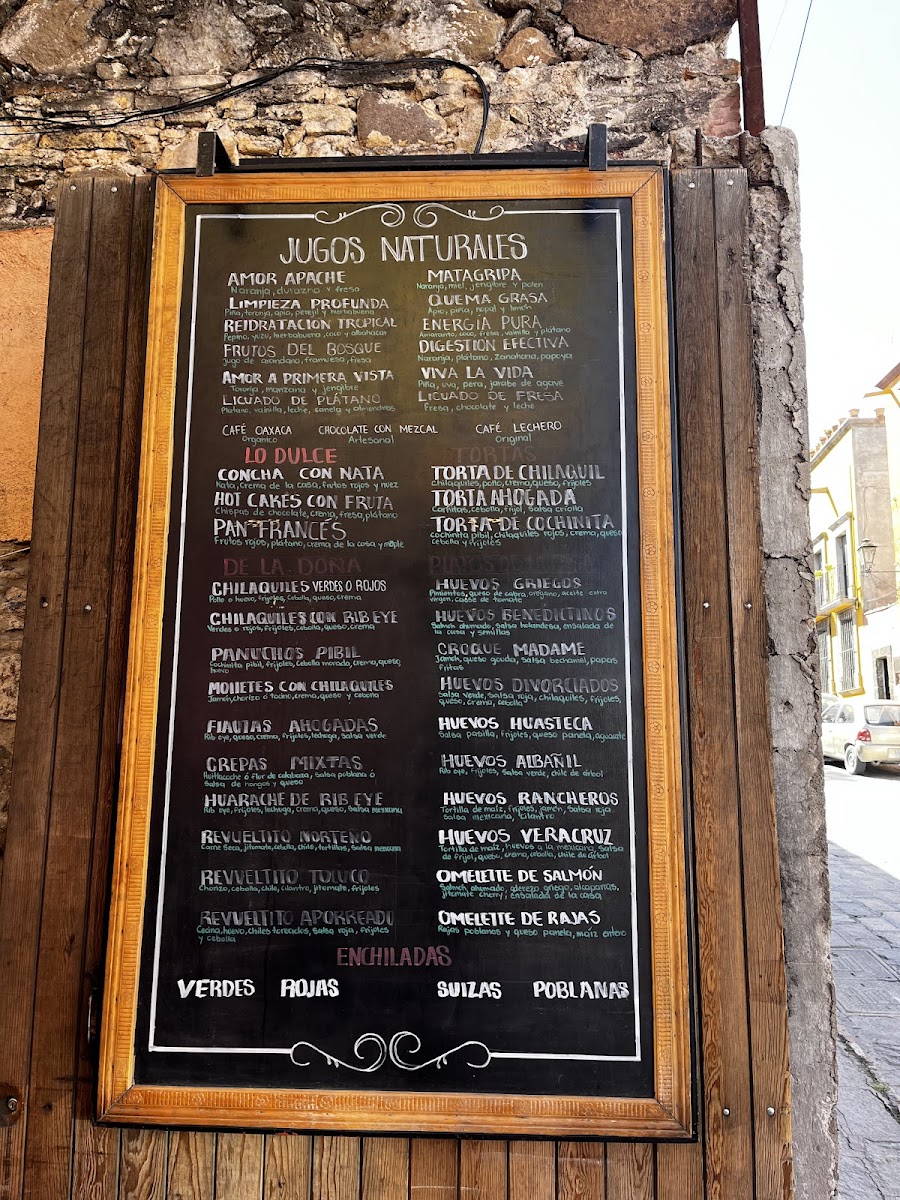 JUGOS NATURALES
AMOR APACHE
Naranja, durazno y fresa
LIMPIEZA PROFUNDA
Piña, toronja, apio, perejil y hierbabuena
REIDRATACION TROPICAL
Pepino, yuzu, hierbabuena, coco y albahaca
FRUTOS DEL BOSQUE
jugo de arandano, framuesa, fresa
AMOR A PRIMERA VISTA
Toronja, manzana y jengibre
LICUADO DE PLÁTANO
Platano, vainilla, leche, canela y almendras
MATAGRIPA
Naranja, miel, jengibre y polen
QUEMA GRASA
Apio, piña, nopal y limón
ENERGIA PURA
Amaranto, coco, fresa, vainilla y plátano
DIGESTION EFECTIVA
Naranja, plátano, zanahoria, papaya
VIVA LA VIDA
Piña, uva, pera, jarabe de agave
LICUADO DE FRESA
Fresa, chocolate y leche
CAFÉ OAXACA CHOCOLATE CON MEZCAL CAFÉ LECHERO
Organico Artesanal Original
LO DULCE
CONCHA CON NATA
Nata, crema de la casa, frutos rojos y nuez
HOT CAKES CON FRUTA
Chispas de chocolate, crema, fresa, plátano
PAN FRANCÉS
Frutos rojos, plátano, crema de la casa y maple
DE LA DOÑA
CHILAQUILES VERDES O ROJOS
Pollo o huevo, frijoles, cebolla, queso, crema
CHILAQUILES CON RIB EYE
Verdes o rojos, frijoles, cebolla, queso, crema
PANUCHOS PIBIL
Cochinita pibil, frijoles, cebolla morada, crema, queso,
huevo
MOLLETES CON CHILAQUILES
Jamón, chorizo o tocino, crema, queso y cebolla
FLAUTAS AHOGADAS
Rib eye, queso, crema, frijoles, lechuga, salsa verde
CREPAS MIXTAS
Huitlacoche ó flor de calabaza, salsa poblana ó
salsa de hongos y queso
HUARACHE DE RIB EYE
Rib eye, frijoles, lechuga, crema, queso, salsa mexicana
REVUELTITO NORTEÑO
Carne seca, jitomate, cebolla, chile, tortillas, salsa mexicana
REVUELTITO TOLUCO
Chorizo, cebolla, chile, cilantro, jitomate, frijoles
REVUELTITO APORREADO
Cecina, huevo, chiles toreados, salsa roja, frijoles
y cebolla
TORTAS
TORTA DE CHILAQUIL
Chilaquiles, pollo, crema, queso, frijoles
TORTA AHOGADA
Carnitas, cebolla, frijol, salsa criolla
TORTA DE COCHINITA
Cochinita pibil, chilaquiles rojos, crema, queso
cebolla y frijoles
HUEVOS GRIEGOS
Pimientos, queso de cabra, orégano, aceite extra
virgen, casse de tomate
HUEVOS BENEDICTINOS
Salmón ahumado, salsa holandesa, ensalada de
la casa y semillas
CROQUE MADAME
Jamón, queso gouda, salsa bechamel, papas
fritas
HUEVOS DIVORCIADOS
Salsa verde, salsa roja, chilaquiles, frijoles,
queso, crema, cebolla
HUEVOS HUASTECA
Salsa pasilla, frijoles, queso panela, aguacate
HUEVOS ALBAÑIL
Rib eye, frijoles, salsa verde, chile de árbol
HUEVOS RANCHEROS
Tortilla de maíz, frijoles, jamón, salsa roja
salsa mexicana, cilantro
HUEVOS VERACRUZ
Tortilla de maíz, huevos a la mexicana, salsa
de frijol, queso, crema, cebolla, chile de árbol
OMELETTE DE SALMÓN
Salmón ahumado, aderezo griego, alcaparras,
jitomate cherry, ensalada de la casa
OMELETTE DE RAJAS
Rajas poblanas y queso panela, maíz entero
ENCHILADAS
VERDES ROJAS SUIZAS POBLANAS